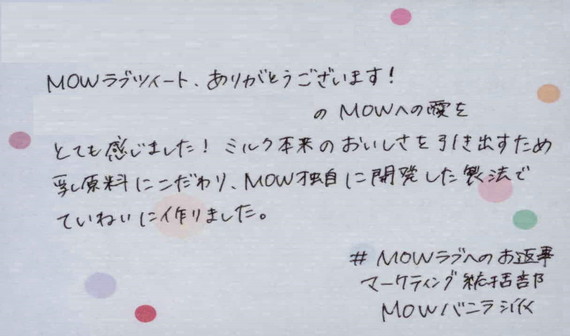 MOWラブツイート、ありがとうございます!
のMOWへの愛を
とても感じました!ミルク本来のおいしさを引き出すため
乳原料にこだわり、MOW独自に開発した製法で
ていねいに作りました。
#MOWラブへのお返事
マーケティング統括部
MOWバニラ派